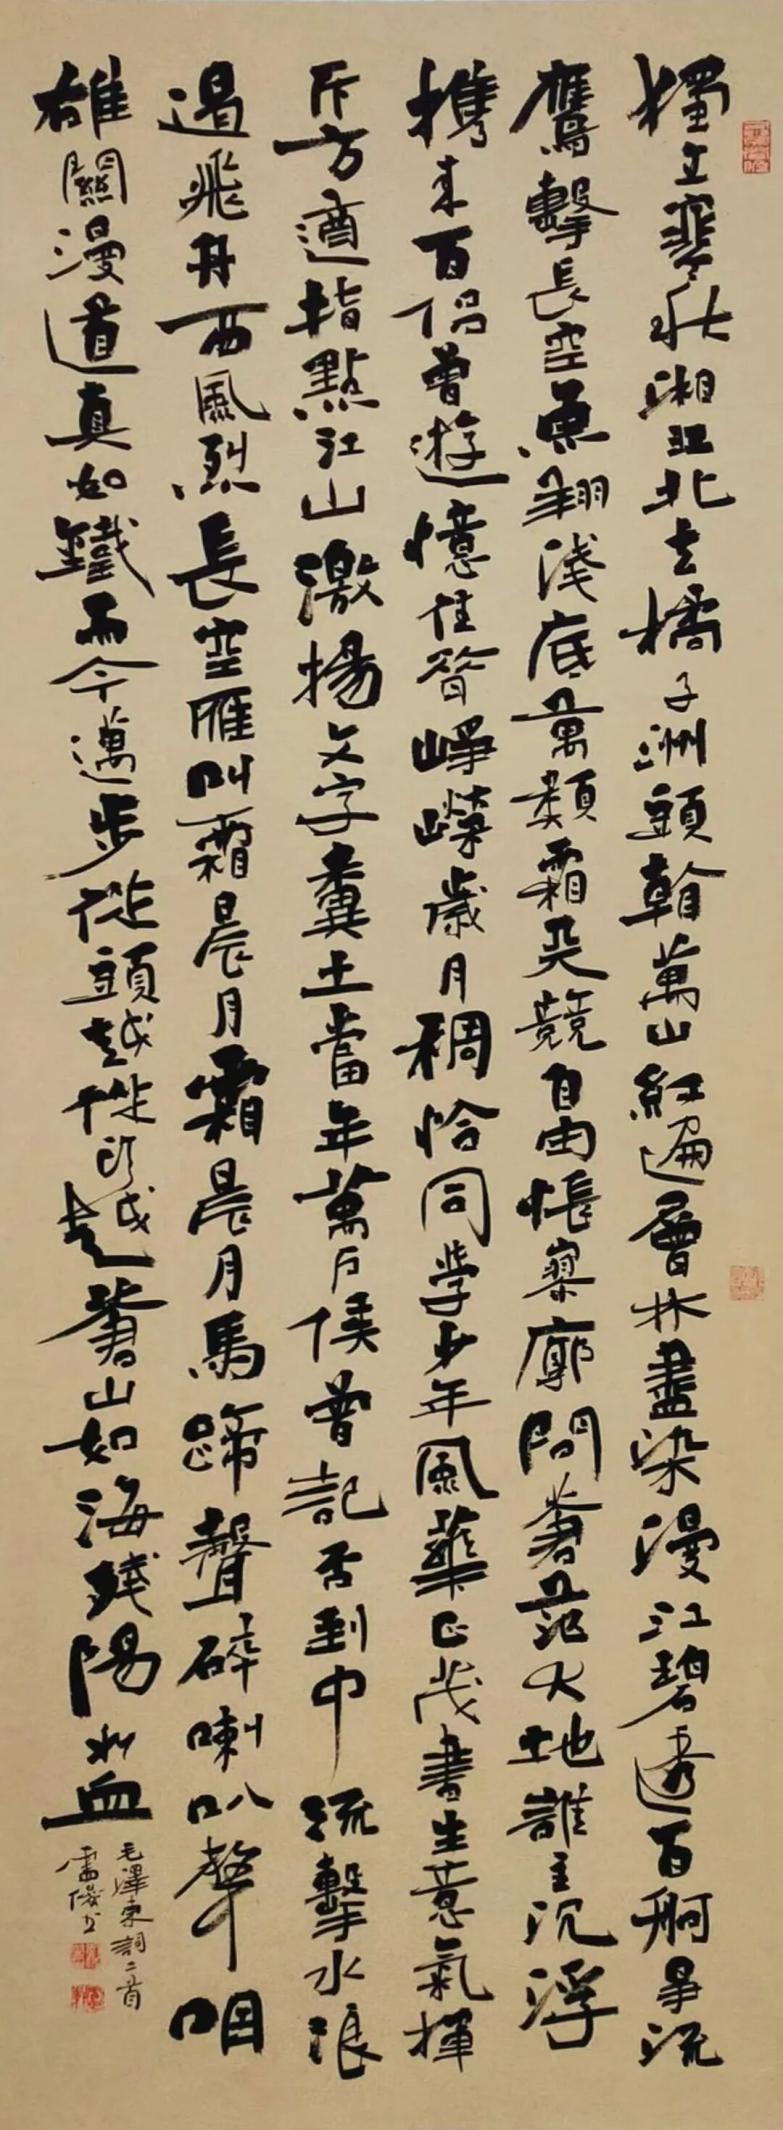 獨立寒秋湘江北去橘子洲頭看萬山紅遍層林盡染漫江碧透百舸爭流
鷹擊長空魚翔淺底萬類霜天競自由悵寥廓問蒼茫大地誰主沉浮
攜來百侶曾遊憶往昔崢嶸歲月稠恰同學少年風華正茂書生意氣揮
斥方遒指點江山激揚文字糞土當年萬戶侯曾記否到中流擊水浪
遏飛舟西風烈長空雁叫霜晨月霜晨月馬蹄聲碎喇叭聲咽
雄關漫道真如鐵而今邁步從頭越從頭越蒼山如海殘陽如血
毛澤東詞二首